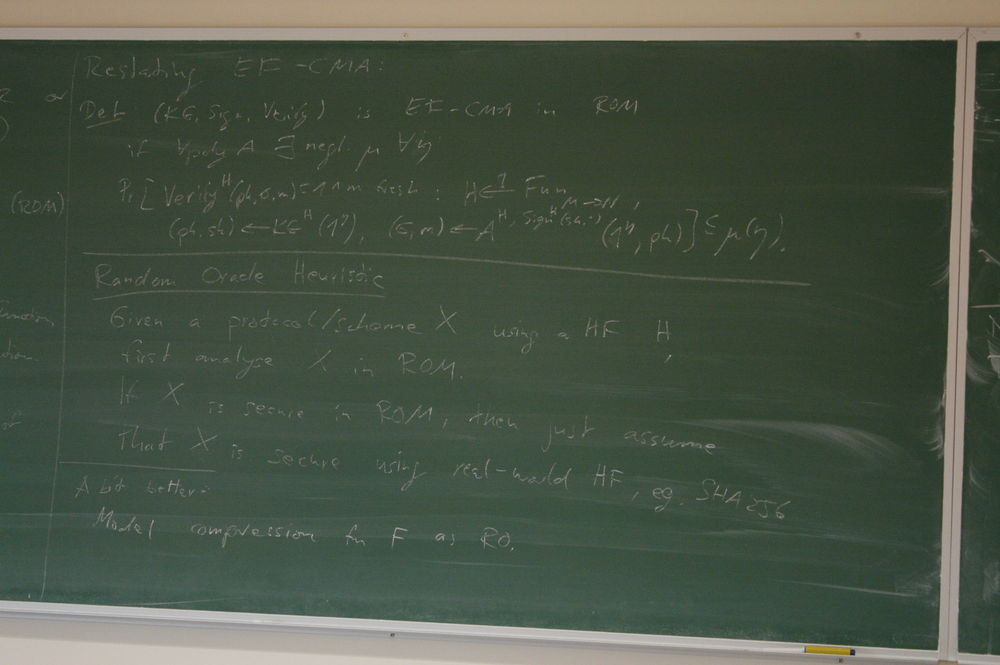 Restating EF-CMA:
Def (KG, Sign, Verify) is EF-CMA in ROM
if ∀poly A ∃ negl. μ ∀η
Pr[Verify^H(pk,σ,m)=1 ∧ m fresh : H ←$ Fun_{M→N},
(pk,sk) ← KG^H(1^η), (σ,m) ← A^{H, Sign^H(sk,·)}(1^η, pk)] ≤ μ(η).
Random Oracle Heuristic
Given a protocol/scheme X using a HF H,
first analyse X in ROM.
If X is secure in ROM, then just assume
that X is secure using real-world HF, eg. SHA256
A bit better:
Model compression fn F as RO.
(ROM)
of